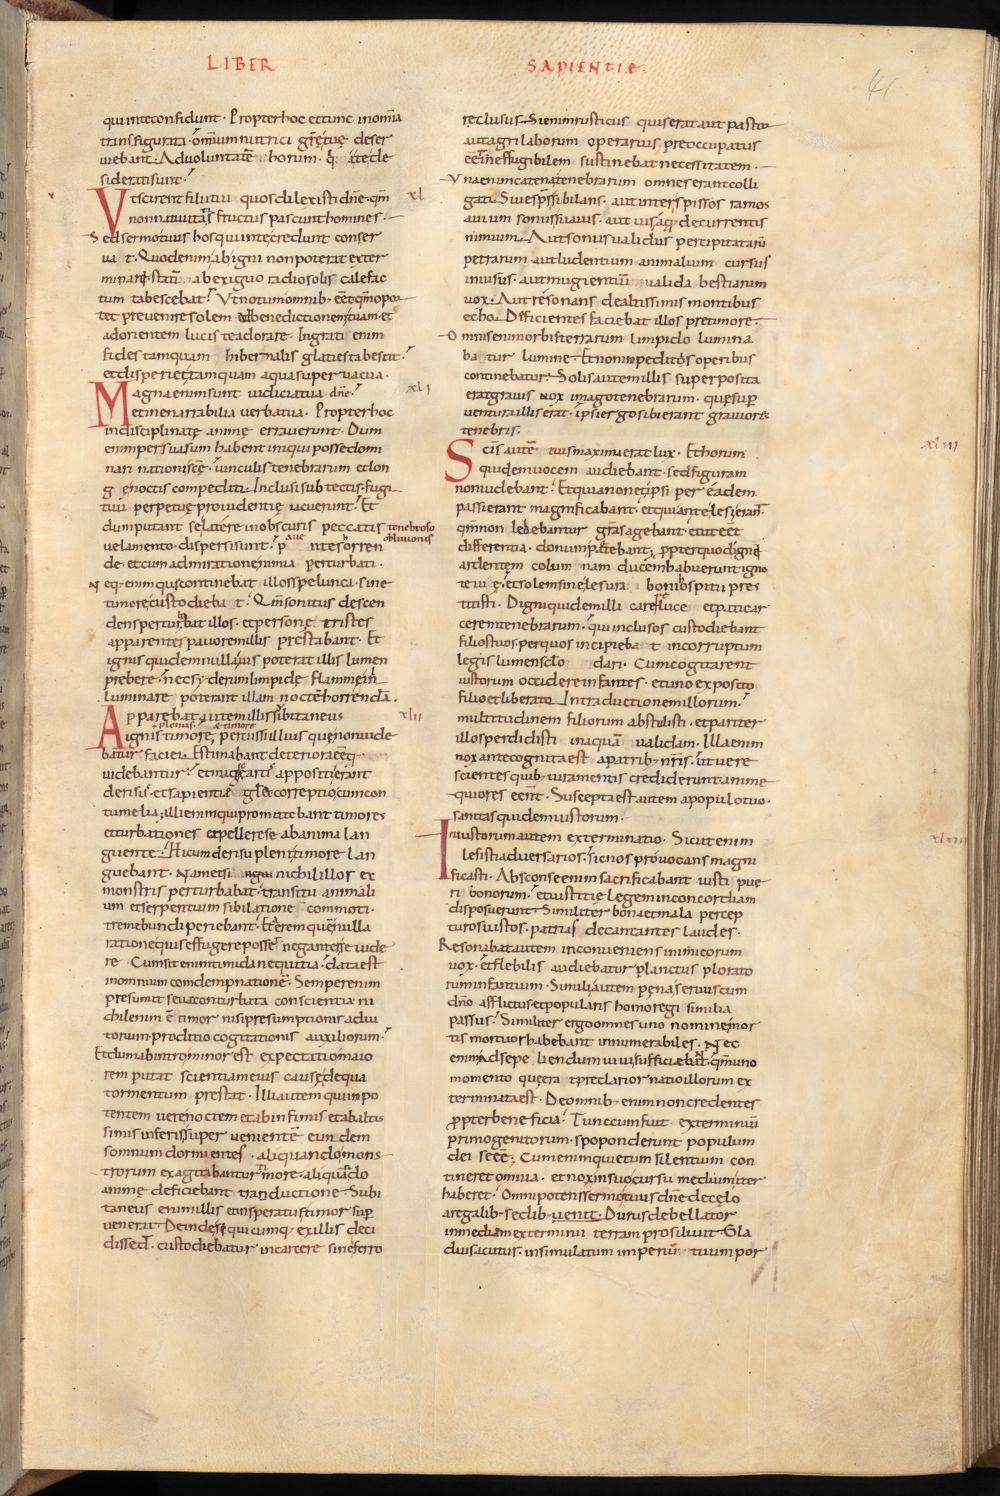 LIBER SAPIENTIÆ
41
qui in te confidunt. Propter hoc et tunc in om̄ia
transfigurata. omnium nutrici gr̄e tuę deser
uiebant. Ad uoluntatē horum. q̇ a te de
siderati sunt.
Vt scirent filii tui quos dilexisti dn̄e. qm̄
xl
non natiuitatis fructus pascunt homines.
Sed sermo tuus hos qui in te crediderunt conser
uat. Quod enim ab igni non poterat exter
minari. statī ab exiguo radio solis calefac
tum tabescebat. Vt notum omnib; eēt qm̄ opor
tet preuenire solem ad benedictionem tuam et
ad orientem lucis te adorare. Ingrati enim
fides tamquam hibernalis glacies tabescit.
et disperiet tamquam aqua superuacua.
Magna enim sunt iudicia tua dn̄e.
xli
et inenarrabilia uerba tua. Propter hoc
indisciplinatę animę errauerunt. Dum
enim persuasum habent iniqui posse domi
nari nationi scę. uinculis tenebrarum et lon
gę noctis compediti. Inclusi sub tectis. fugi
tiui perpetuę prouidentię iacuerunt. Et
dum putant se latere in obscuris peccatis tenebroso
obliuionis
uelamento. dispersi sunt. pauentes horren
de. et cum admiratione nimia perturbati.
Neq; enim quę continebat illos spelunca. sine
timore custodiebat. Qm̄ sonitus descen
dens perturbabat illos. et personę tristes
apparentes pauorem illis prestabant. Et
ignis quidem nulla uis poterat illis lumen
prebere. nec syderum limpidę flammę
luminare poterant illam noctē horrendā.
Apparebat autem illis subitaneus
xlii
ignis timore plenus. et timore percussi illius quę non uide
batur faciei. Estimabant deteriora eē quę
uidebantur. et magicę artis appositi erant
derisus. et sapientię glę correptio cum con
tumelia. illi enim qui promittebant timores
et turbationes expellere se ab anima lan
guente. Hi cum derisu pleni timore lan
guebant. Nam etsi nichil illos ex
monstris perturbabat. transitu animali
um et serpentium sibilatione commoti.
tremebundi peribant. Et aerem quem nulla
ratione quis effugere posset negantes se uide
re. Cum sit enim timida nequitia. data est
in omnium condempnationē. Semper enim
presumit seua conturbata conscientia. ni
chil enim ē timor nisi presumptionis adiu
torium. proditio cogitationis auxiliorum.
Et dum ab intro minor est expectatio. maio
rem putat scientiam eius causę de qua
tormentum prestat. Illi autem qui impo
tentem uere noctem et ab infimis et ab altis
simis inferis superuenientē eundem
somnum dormientes. aliquando mons
trorum exagitabantur timore. aliquando
animę deficiebant traductione. Subi
taneus enim illis et insperatus timor sup
uenerat. Deinde si quicumq; ex illis deci
disset. custodiebatur in carcere sine ferro
reclusus. Si enim rusticus quis erat aut pastor
aut agri laborum operarius preoccupatus
eēt. ineffugibilem sustinebat necessitatem.
Vna enim catena tenebrarum omnes erant colli
gati. Siue spss̄ sibilans. aut inter spissos ramos
auium sonus suauis. aut uis aquę decurrentis
nimium. Aut sonus ualidus precipitatarū
petrarum. aut ludentium animalium cursus
inuisus. aut mugientiū ualida bestiarum
uox. Aut resonans de altissimis montibus
echo. Deficientes faciebat illos pre timore.
Omnis enim orbis terrarum limpido lumina
batur lumine. Et non impeditis operibus
continebatur. Solis autem illis superposita
erat grauis nox imago tenebrarum. quę sup
uentura illis erat. ipsi ergo sibi erant grauiores
tenebris.
Scīs autē tuis maxima erat lux. Et horum
xliii
quidem uocem audiebant. sed figuram
non uidebant. Et quia non et ipsi per eadem
passi erant magnificabant. et qui ante lesi erant.
qm̄ non ledebantur gr̄as agebant. et ut eēt
differentia. donum petebant. ppter quod ignē
ardentem columnam ducem habuerunt igno
te uię. et solem sine lesura boni hospitii pres
titisti. Digni quidem illi carere luce et pati car
cerem tenebrarum. qui inclusos custodiebant
filios tuos. per quos incipiebat incorruptum
legis lumen sclo dari. Cum cogitarent
iustorum occidere infantes. et uno exposito
filio et liberato. In traductionem illorum.
multitudinem filiorum abstulisti. et pariter
illos perdidisti in aqua ualida. Illa enim
nox ante cognita est a patrib; nr̄is. ut uere
scientes quib; iuramentis crediderunt animę
quiores eēnt. Suscepta est autem a populo tuo.
sanitas quidem iustorum.
Iniustorum autem exterminatio. Sicut enim
xliiii
lesisti aduersarios. sic nos prouocans magni
ficasti. Absconse enim sacrificabant iusti pue
ri bonorum. et iustitię legem in concordiam
disposuerunt. Similiter bona et mala percep
turos iustos. patrias decantantes laudes.
Resonabat autem inconueniens inimicorum
uox. et flebilis audiebatur planctus plorato
rum infantium. Simili autem pena seruus cum
dn̄o afflictus. et popularis homo regi similia
passus. Similiter ergo omnes uno nomine mor
tis mortuos habebant innumerabiles. Nec
enim ad sepeliendum uiui sufficiebant. qm̄ uno
momento quę erat preclarior natio illorum ex
terminata est. De omnib; enim non credentes
ppter beneficia. Tunc cum fuit exterminiū
primogenitorum. spoponderunt populum
dei se eēe. Cum enim quietum silentium con
tineret omnia. et nox in suo cursu medium iter
haberet. Omnipotens sermo tuus dn̄e de cęlo
a regalib; sedib; uenit. Durus debellator
in mediam exterminii terram prosiliuit. Gla
dius acutus. insimulatum imperiū tuum por